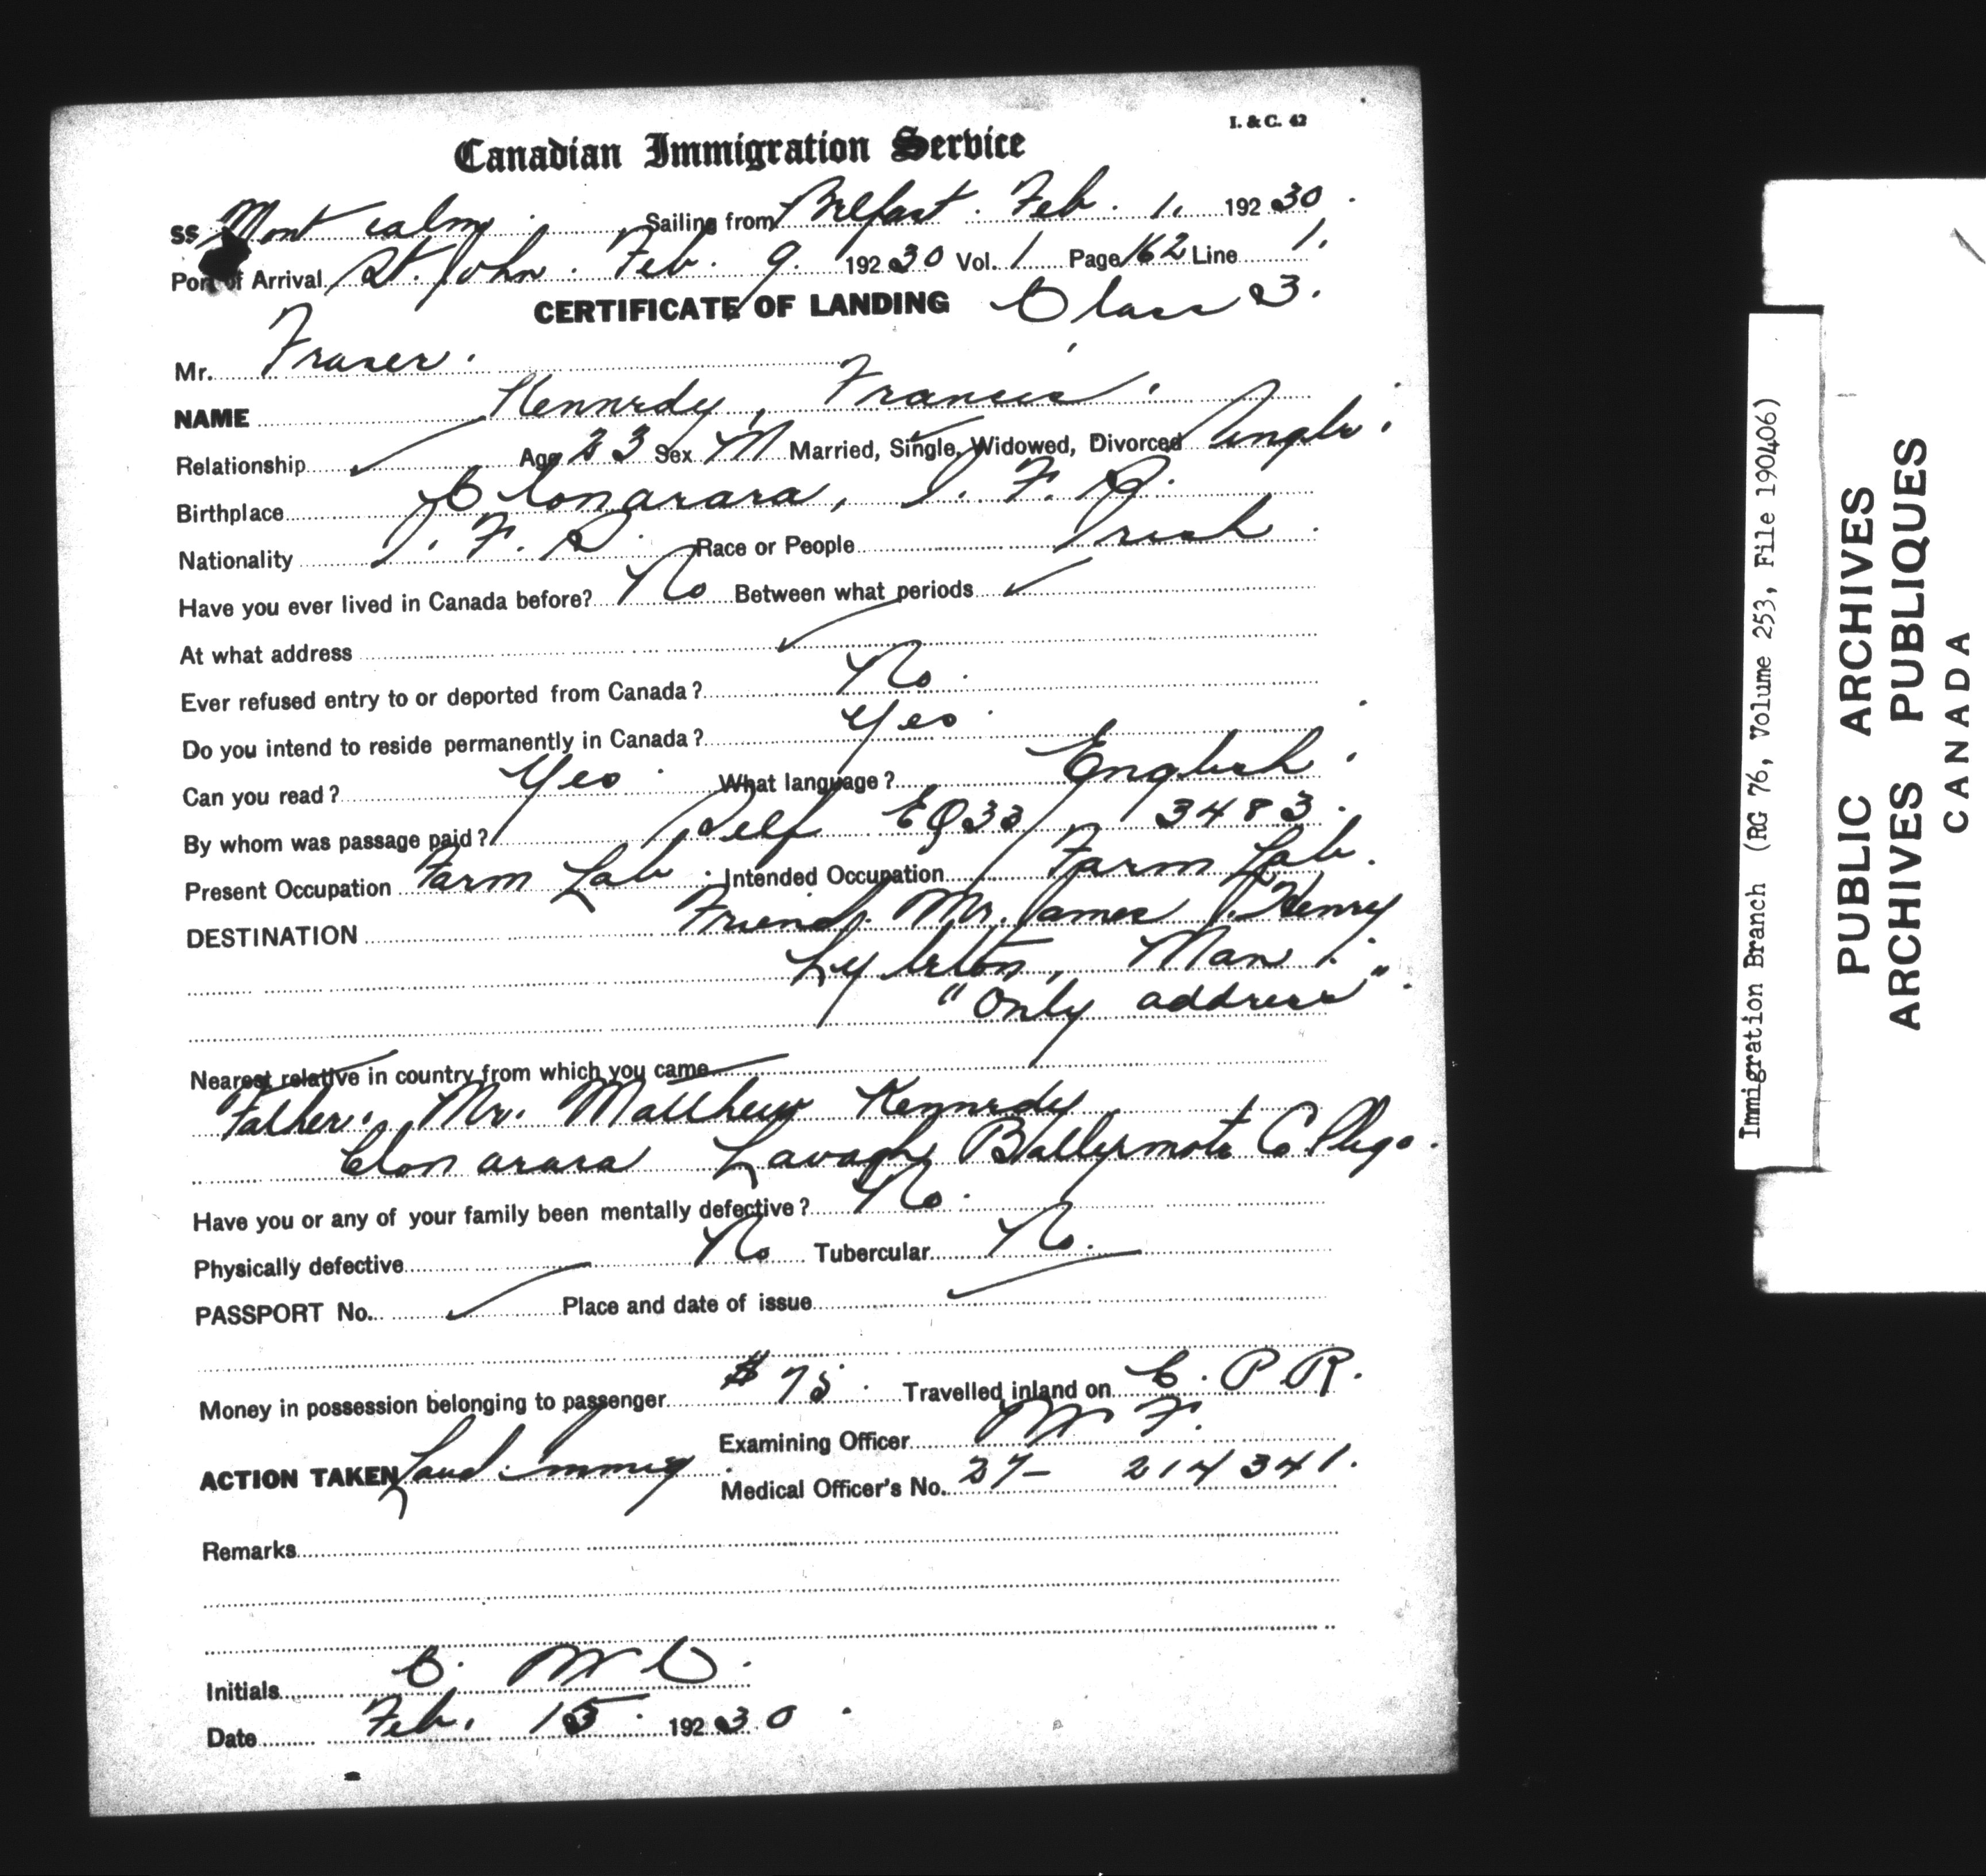 I. & C. 42
Canadian Immigration Service
SS Montcalm Sailing from Belfast. Feb. 1. 192 30.
Port of Arrival St. John. Feb. 9. 192 30 Vol. 1 Page 162 Line 1.
CERTIFICATE OF LANDING Class 3.
Mr. Fraser.
NAME Kennedy, Francis.
Relationship Age 23 Sex M Married, Single, Widowed, Divorced Single.
Birthplace Clonarara, I. F. S.
Nationality I. F. S. Race or People Irish.
Have you ever lived in Canada before? No Between what periods
At what address
Ever refused entry to or deported from Canada? No.
Do you intend to reside permanently in Canada? Yes.
Can you read? Yes. What language? English.
By whom was passage paid? Self EQ33 / 3483.
Present Occupation Farm Lab. Intended Occupation Farm Lab.
DESTINATION Friend. Mr. James J. Henry
Lyleton, Man.
"Only address".
Nearest relative in country from which you came
Father. Mr. Matthew Kennedy
Clonarara Lavagh Ballymote Co Sligo.
Have you or any of your family been mentally defective? No.
Physically defective No Tubercular No.
PASSPORT No. Place and date of issue
Money in possession belonging to passenger $75. Travelled inland on C. P. R.
Examining Officer
ACTION TAKEN Land. immig.
Medical Officer's No. 27- 214341.
Remarks
Initials
Date Feb. 15. 192 30.
Immigration Branch (RG 76, Volume 253, File 190406)
PUBLIC ARCHIVES
ARCHIVES PUBLIQUES
CANADA